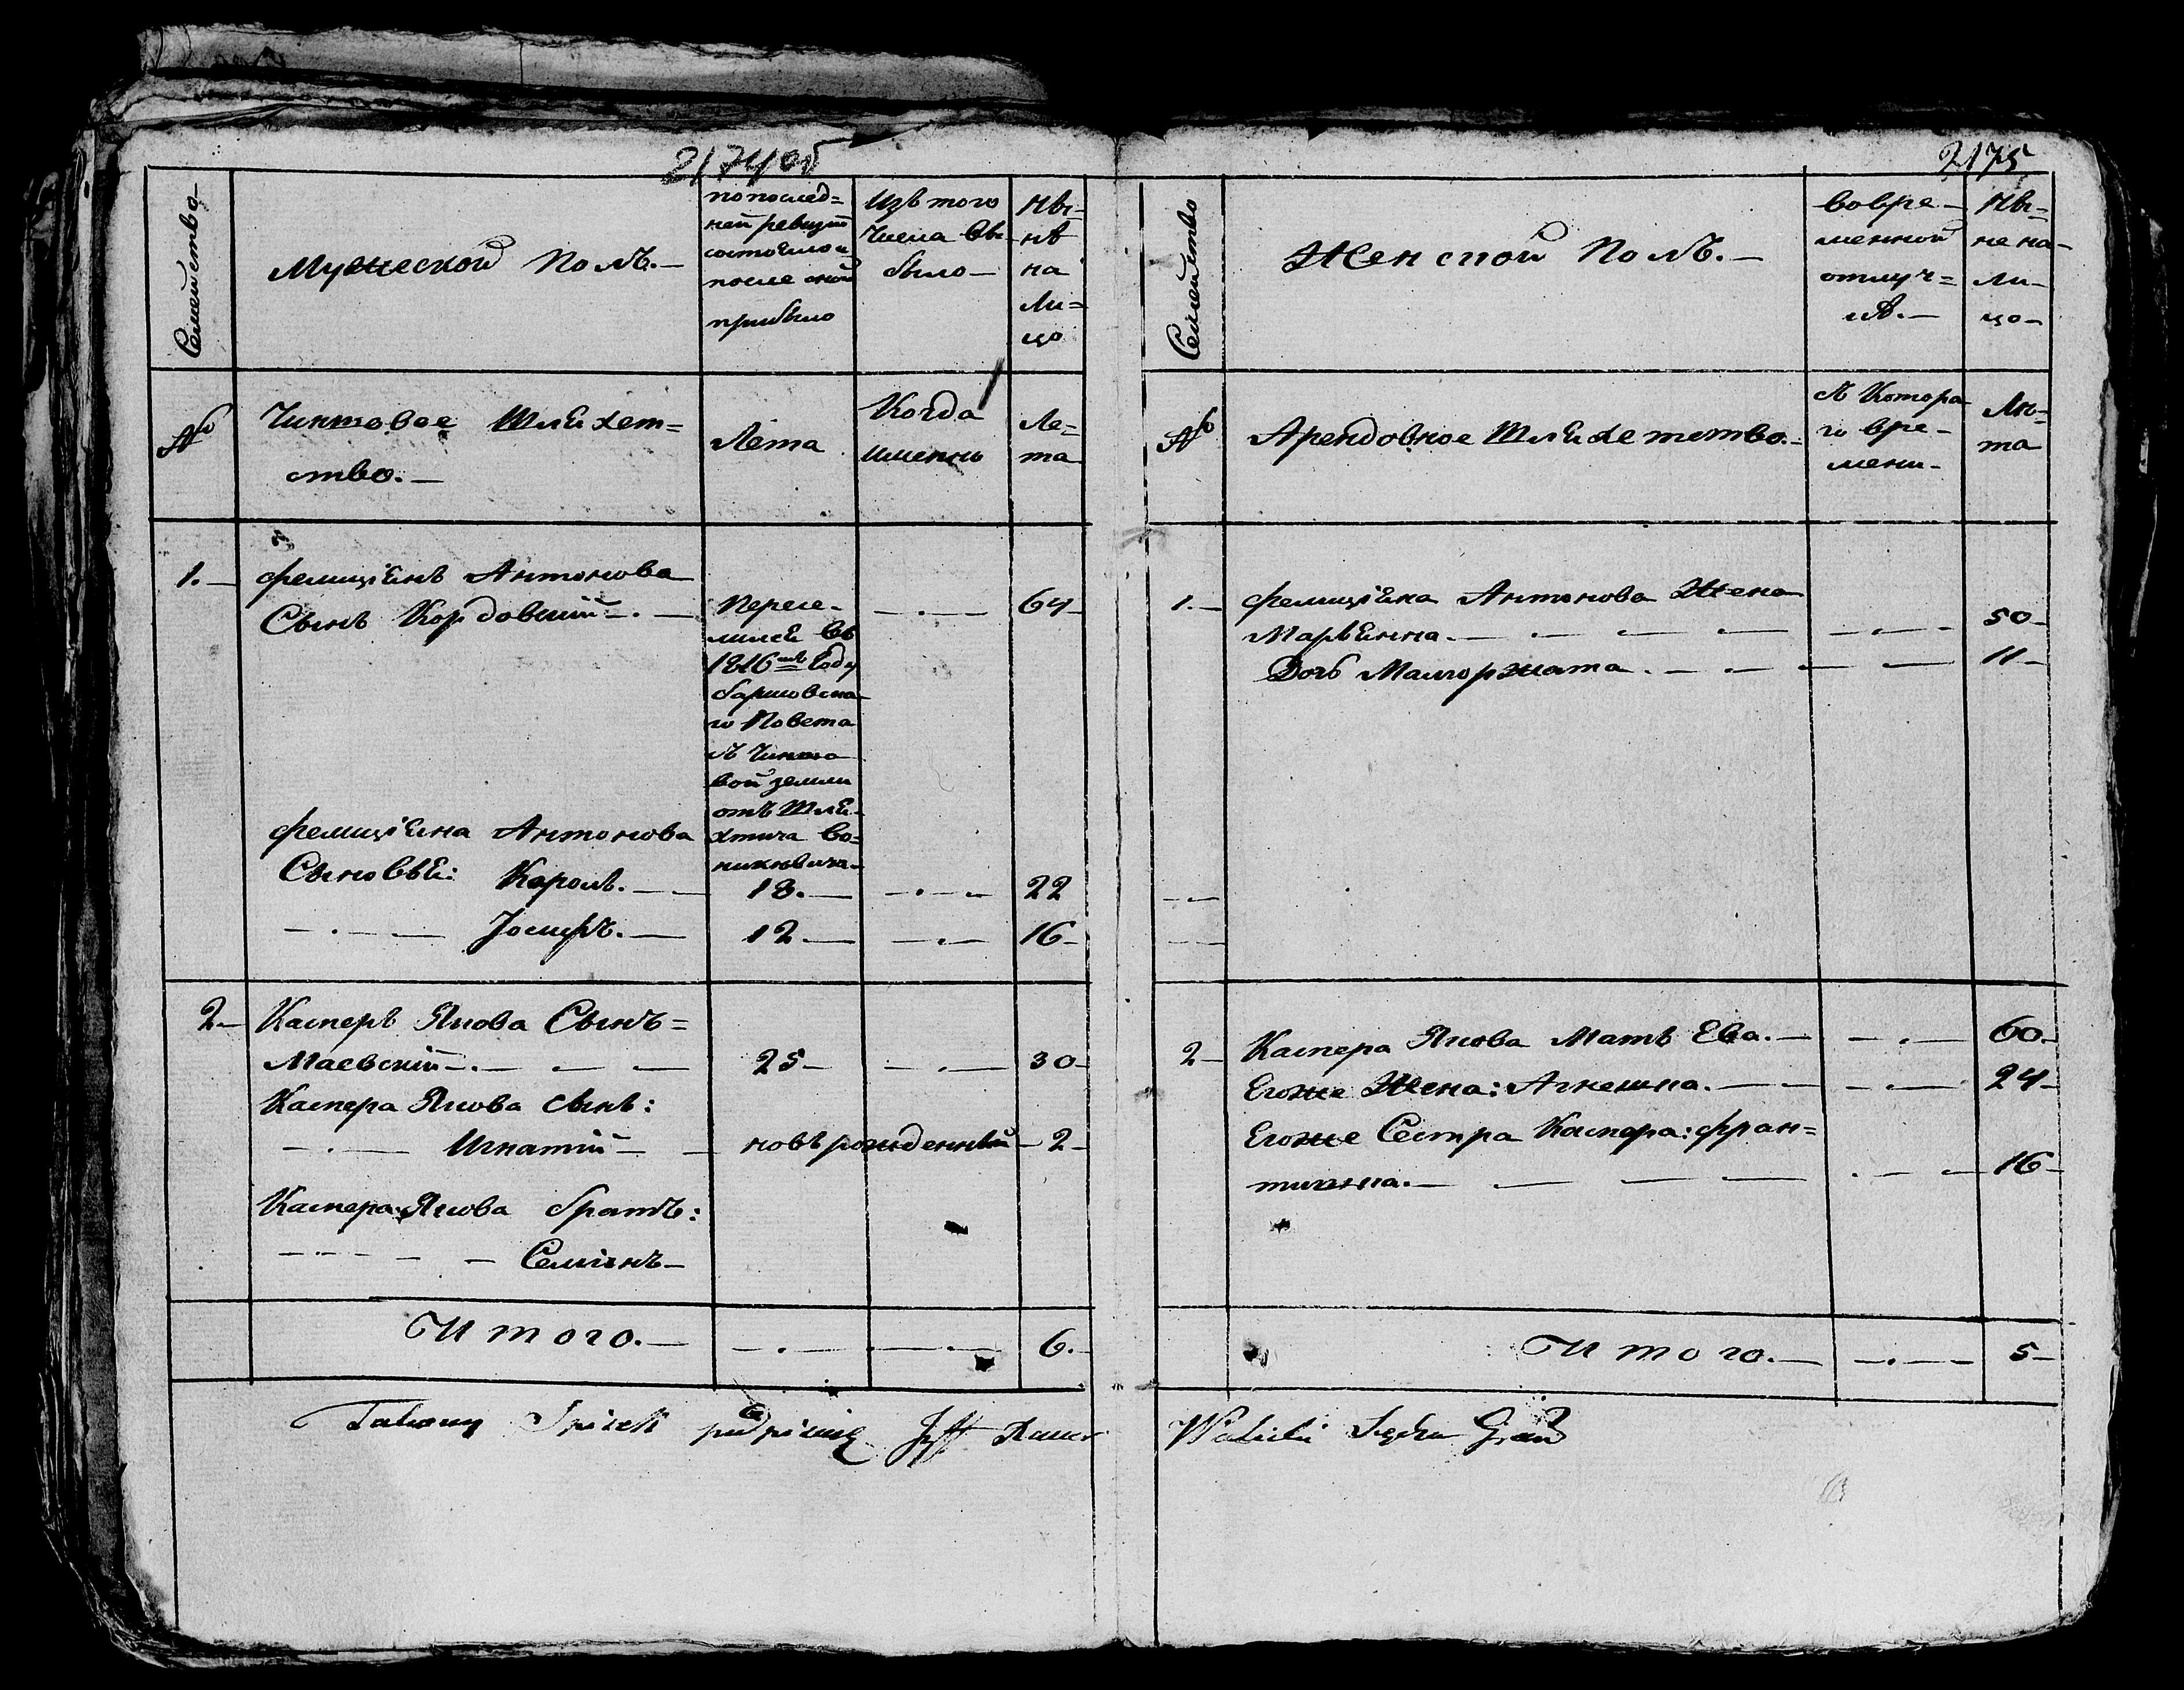 2174об
Семейство
Мужеской Полъ.
по послед=
ней ревизіи
состояло и
после оной
прибыло
Изъ того
Числа вы
было
Ны=
нѣ
на
Ли=
цо
№
Чиншовое Шляхет=
ство.
Лета
Когда
именно
Ле=
та
1. Фелиціянъ Антонова
Сынъ Кордовскій 64
Пересе-
лился въ
1816мъ Году
го Повета
съ Чиншо
вой земли
отъ Шля-
хтича
Фелиціяна Антонова
Сыновья: Кароль. 18. 22
Іосифъ. 12 16
2 Касперъ Янова Сынъ=
Маевскій 25 30
Каспера Янова сынъ:
Игнатій новърожденный 2
Каспера Янова братъ:
Семіянъ
Итого. 6.
2175
Семейство
Женской Полъ.
во вре-
менной
отлуч=
кѣ.
Ны=
не на
Ли-
цо
№
Арендовное Шляхетство.
съ Котора
го вре-
мени
Ле=
та
1. Фелиціяна Антонова Жена
Марьянна. 50
Дочь Малгоржата. 11
2 Каспера Янова Мать Ева. 60
Егоже Жена: Агнешка. 24
Егоже Сестра Каспера: Фран=
тишка. 16
Итого. 5
Takowy podpisuię